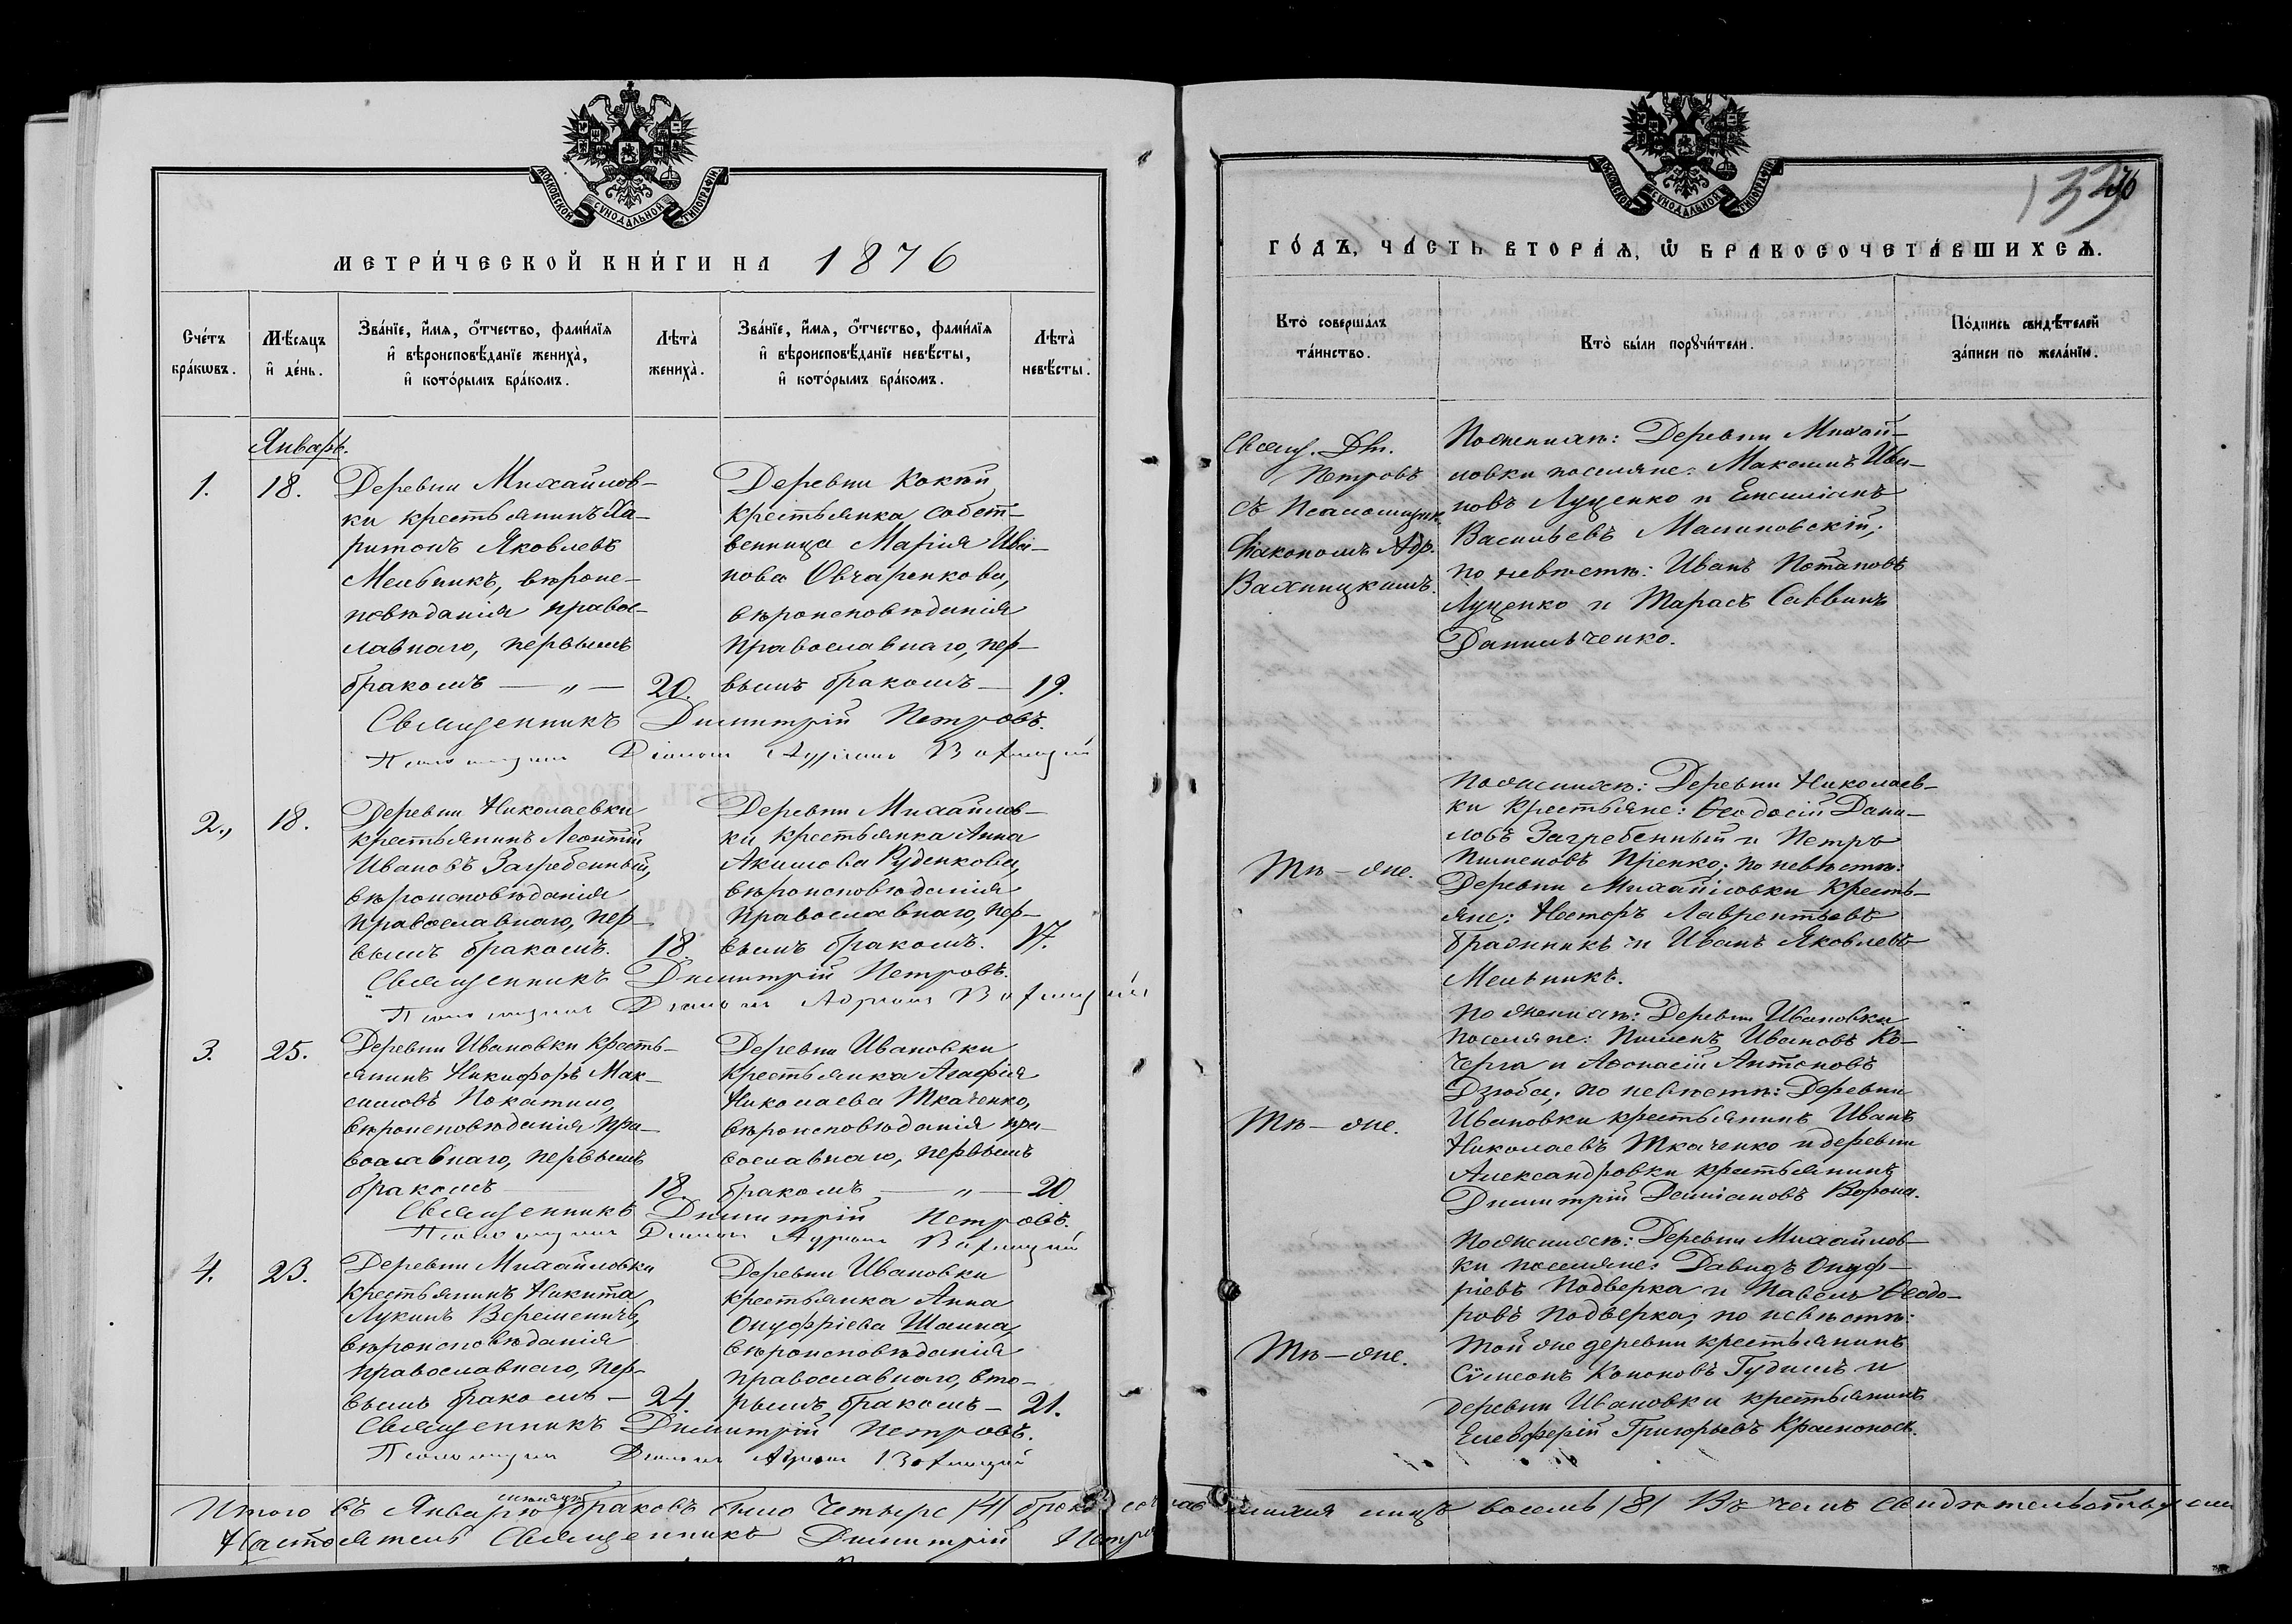 МОСКОВСКОЙ СѴНОДАЛЬНОЙ ТИПОГРАФІИ
МЕТРИ́ЧЕСКОЙ КНИ́ГИ НА 1876
Сче́тъ бра́кѡвъ.
Мѣ́сѧцъ и҆ де́нь.
Зва́нїе, и҆́мѧ, ѻ҆́тчество, фами́лїѧ
и҆ вѣроисповѣ́данїе жениха̀,
и҆ кото́рымъ бра́комъ.
Лѣта̀ жениха̀.
Зва́нїе, и҆́мѧ, ѻ҆́тчество, фами́лїѧ
и҆ вѣроисповѣ́данїе невѣ́сты,
и҆ кото́рымъ бра́комъ.
Лѣта̀ невѣ́сты.
Январь.
1.
18.
Деревни Михайлов-
ки крестьянинъ Ха-
ритонъ Яковлевъ
Мельникъ, вѣроис-
повѣданія правос-
лавнаго, первымъ
бракомъ — „ —
20.
Деревни Кокѣй
крестьянка собст-
венница Марія Ива-
нова Овчаренкова,
вѣроисповѣданія
православнаго, пер-
вымъ бракомъ —
19.
Священникъ Димитрій Петровъ.
Псаломщикъ Діаконъ Адріанъ
2.,
18.
Деревни Николаевки
крестьянинъ Леонтій
Ивановъ Загребенный,
вѣроисповѣданія
православнаго, пер-
вымъ бракомъ.
18.
Деревни Михайлов-
ки крестьянка Анна
Акимова Руденкова,
вѣроисповѣданія
православнаго, пер-
вымъ бракомъ.
17.
Священникъ Димитрій Петровъ.
Псаломщикъ Діаконъ Адріанъ
3.
25.
Деревни Ивановки кресть-
янинъ Никифоръ Мак-
симовъ Покатило,
вѣроисповѣданія пра-
вославнаго, первымъ
бракомъ
18.
Деревни Ивановки
крестьянка Агафія
Николаева Ткаченко,
вѣроисповѣданія пра-
вославнаго, первымъ
бракомъ — „ —
20
Священникъ Димитрій Петровъ.
Псаломщикъ Діаконъ Адріанъ
4.
23.
Деревни Михайловки
крестьянинъ Никита
Лукинъ Веремеичъ,
вѣроисповѣданія
православнаго, пер-
вымъ бракомъ —
24.
Деревни Ивановки
крестьянка Анна
Онуфріева Шаина,
вѣроисповѣданія
православнаго, вто-
рымъ бракомъ —
21.
Священникъ Димитрій Петровъ.
Псаломщикъ Діаконъ Адріанъ
Итого въ Январѣ мѣсяцѣ браковъ было четыре /4/
Настоятель Священникъ Димитрій
МОСКОВСКОЙ СѴНОДАЛЬНОЙ ТИПОГРАФІИ
ГО́ДЪ, ЧА́СТЬ ВТОРА́Ѧ, Ѽ БРАКОСОЧЕТА́ВШИХСѦ.
Кто̀ соверша́лъ
та́инство.
Кто̀ бы́ли порꙋчи́тели.
По́дпись свидѣ́телей
за́писи по жела́нїю.
Свящ. Дм.
Петровъ
съ Псаломщик.
Діакономъ Адр.
По женихѣ: Деревни Михай-
ловки поселяне: Максимъ Ива-
новъ Луценко и Емиліанъ
Васильевъ Малиновскій;
по невѣстѣ: Иванъ Потаповъ
Луценко и Тарасъ Саввинъ
Данильченко.
Тѣ-же.
По женихѣ: Деревни Николаев-
ки крестьяне: Ѳеодосій Дани-
ловъ Загребенный и Петръ
Пименовъ по невѣстѣ:
Деревни Михайловки кресть-
яне: Несторъ Лаврентьевъ
Бражникъ и Иванъ Яковлевъ
Мельникъ.
Тѣ-же.
По женихѣ: Деревни Ивановки
поселяне: Пименъ Ивановъ Ко-
черга и Аѳонасій Антоновъ
Дзюба; по невѣстѣ: Деревни
Ивановки крестьянинъ Иванъ
Николаевъ Ткаченко и деревни
Александровки крестьянинъ
Димитрій Даміановъ Ворона.
Тѣ-же.
По женихѣ: Деревни Михайлов-
ки поселяне: Давидъ Онуф-
ріевъ Подверка и Павелъ Ѳеодо-
ровъ Подверка; по невѣстѣ:
Той же деревни крестьянинъ
Сѵмеонъ Кононовъ Гудимъ и
деревни Ивановки крестьянинъ
Елевферій Григорьевъ Красноносъ.
лицъ восемь /8/ Въ чемъ свидѣтельствуемъ